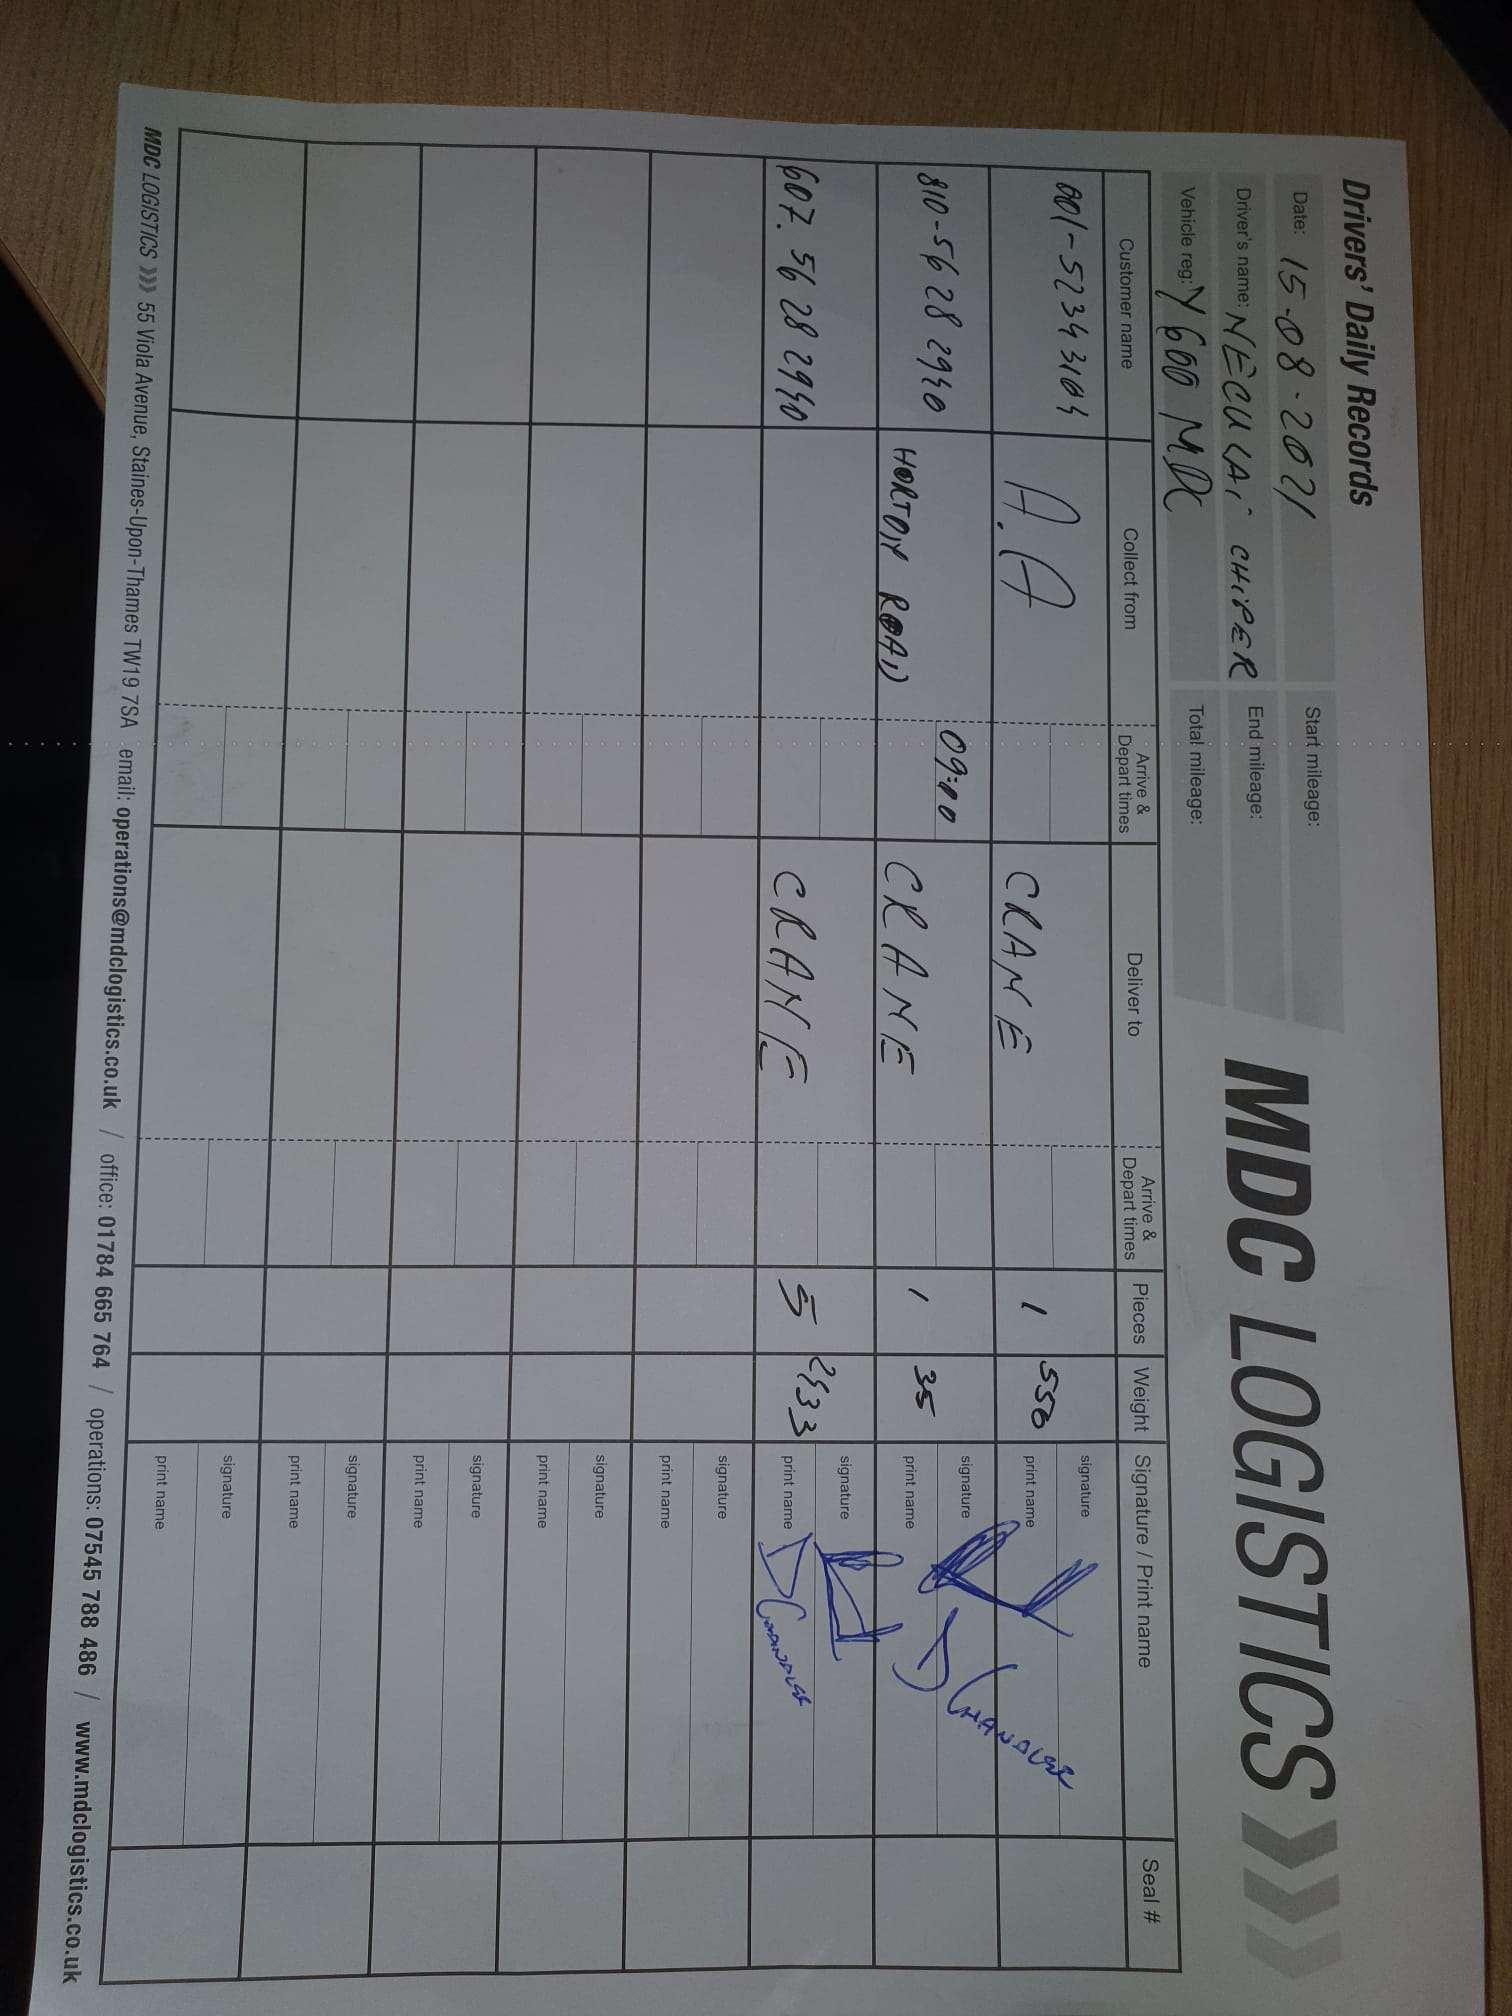 Drivers' Daily Records
MDC LOGISTICS
Date: 15-08-2021
Start mileage:
Driver's name: NECULAI CHIPER
End mileage:
Vehicle reg: Y600 MDC
Total mileage:
Customer name Collect from Arrive & Depart times Deliver to Arrive & Depart times Pieces Weight Signature / Print name Seal #
001-52343104 A.A CRANE 1 550 signature
print name
810-56282940 HORTON ROAD 09:00 CRANE 1 35 signature D CHANDLER
print name
607. 56282940 CRANE 5 2433 signature
print name D CHANDLER
signature
print name
signature
print name
signature
print name
signature
print name
signature
print name
MDC LOGISTICS 55 Viola Avenue, Staines-Upon-Thames TW19 7SA email: operations@mdclogistics.co.uk / office: 01784 665 764 / operations: 07545 788 486 / www.mdclogistics.co.uk